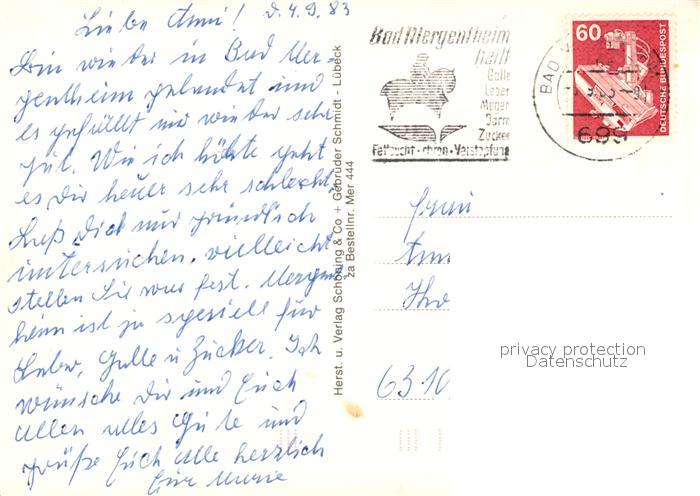 Liebe Anni! D. 4.9.83
Bin wieder in Bad Mer-
gentheim gelandet und
es gefüllt mir wieder sehr
gut. Wie ich hörte geht
es Dir heuer sehr schlecht.
Laß Dich mir gründlich
untersuchen, vielleicht
stellen Sie was fest. Mergent
heim ist ja speziell für
Leber, Galle u Zucker. Ich
wünsche Dir und Euch
allen alles Gute und
grüße Euch alle herzlich
Eure
Herst. u. Verlag Schöning & Co + Gebrüder Schmidt - Lübeck
za Bestellnr. Mer 444
Bad Mergentheim
heilt
Galle
Leber
Magen
Darm
Zucker
Fettsucht · chron · Verstopfung
BAD
699
60
DEUTSCHE BUNDESPOST
Frau
6310
privacy protection
Datenschutz